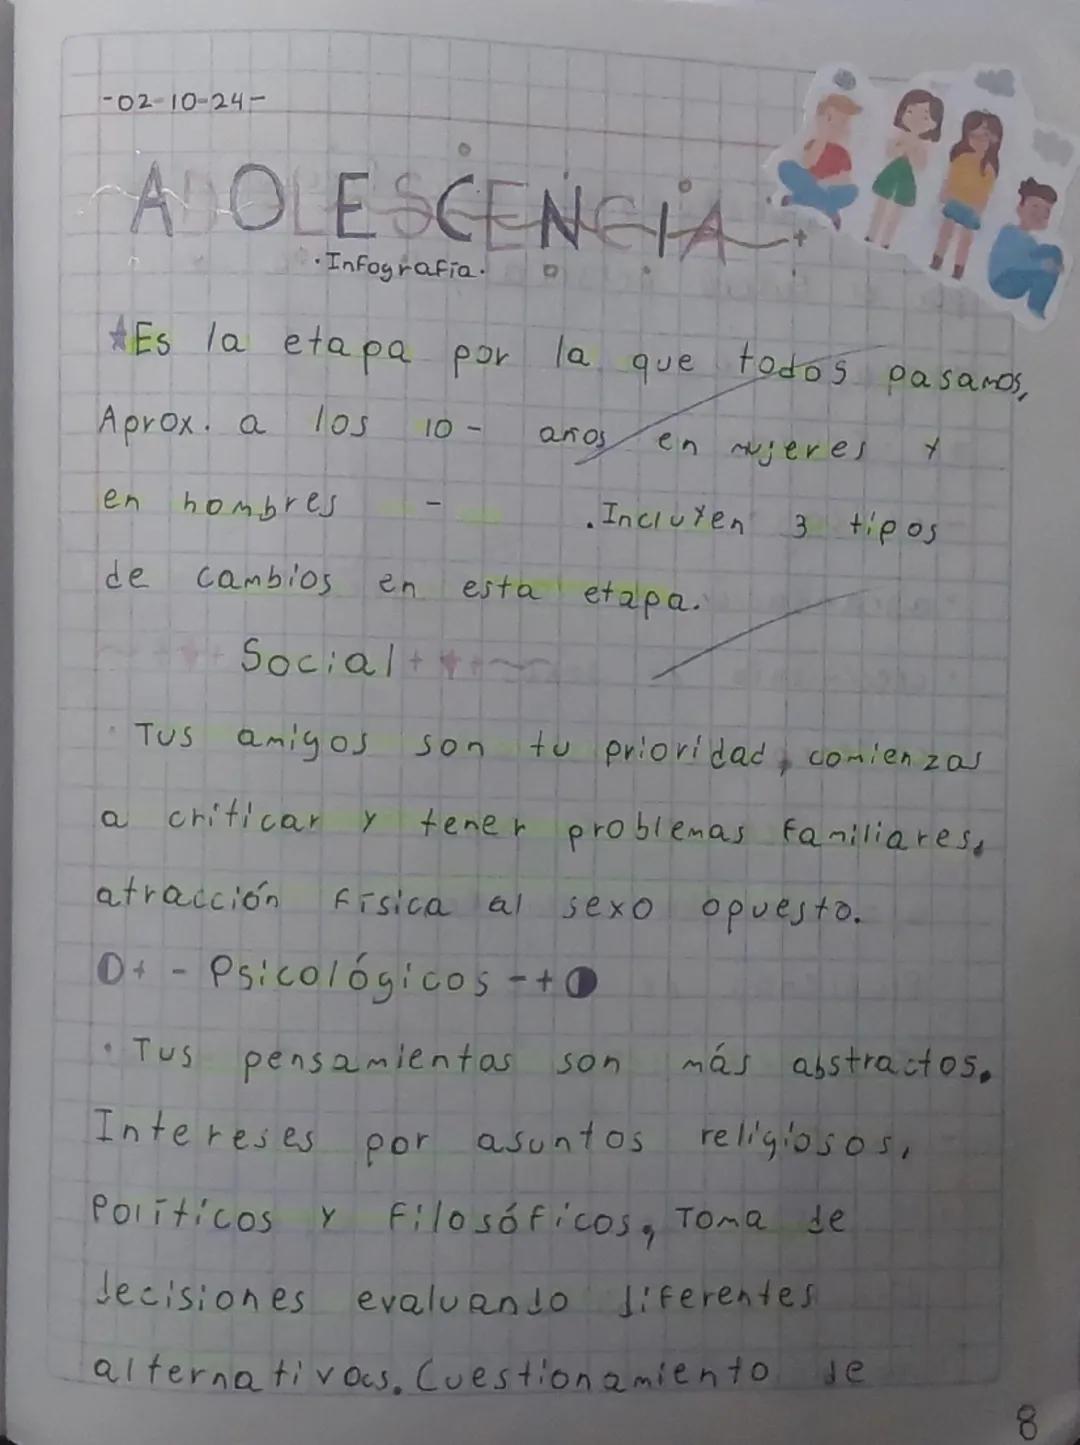 -02-10-24-
ADOLESCENCIA
·Infografía·
Es la etapa por la que todos pasamos,
Aprox. a los 10 - años en mujeres y
en hombres - . Incluyen 3 tipos
de cambios en esta etapa.
Social
· Tus amigos son tu prioridad, comienzas
a criticar y tener problemas familiares,
atracción física al sexo opuesto.
- Psicológicos -
· Tus pensamientos son más abstractos.
Intereses por asuntos religiosos,
políticos y filosóficos, Toma de
decisiones evaluando diferentes
alternativas. Cuestionamiento de
8